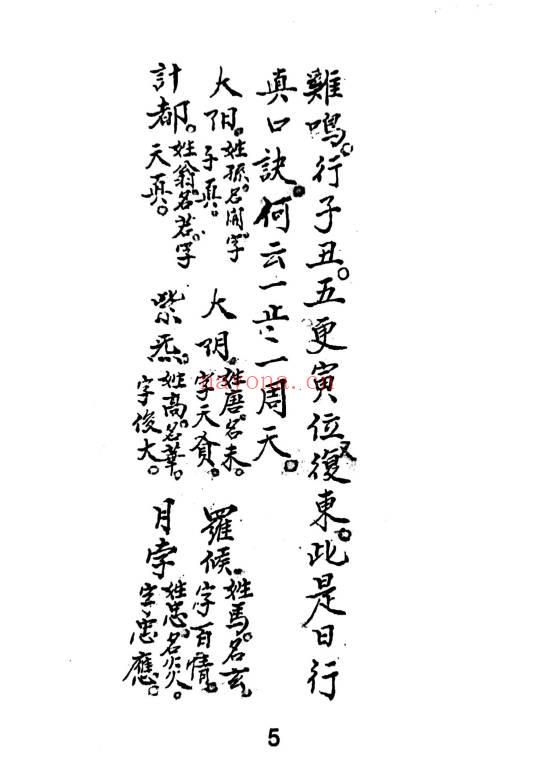 雞鳴。行子丑。五更寅位復東。此是日行
真口訣。何云一止止一周天。
太阳。姓孫名開字子真。
太阴。姓唐名末。字天賁。
羅候。姓馬名玄。字百情。
計都。姓翁名若。字天真。
紫炁。姓高名華。字俊大。
月孛。姓忠名炎。字惡應。
5